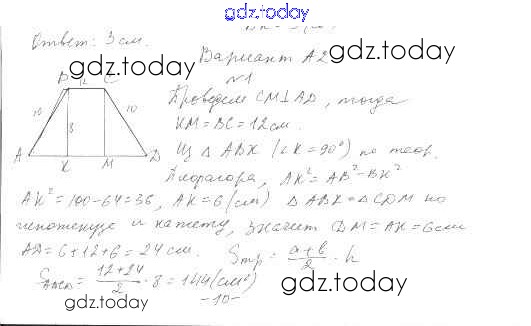 gdz.today
Ответ: 3 см.
gdz.today
Вариант А2
№1
B 12 C
10 10
8
A K M D
Проведем CM⊥AD, тогда
KM=BC=12см.
Из △ ABK (∠K=90°) по теор.
Пифагора, AK²=AB²-BK²
AK²=100-64=36, AK=6(см) △ABK=△CDM по
гипотенузе и катету, значит DM=AK=6см
AD=6+12+6=24 см. Sтр = a+b/2 · h
SABCD = 12+24/2 · 8=144(см²)
-10-
gdz.today
gdz.today
gdz.today
gdz.today